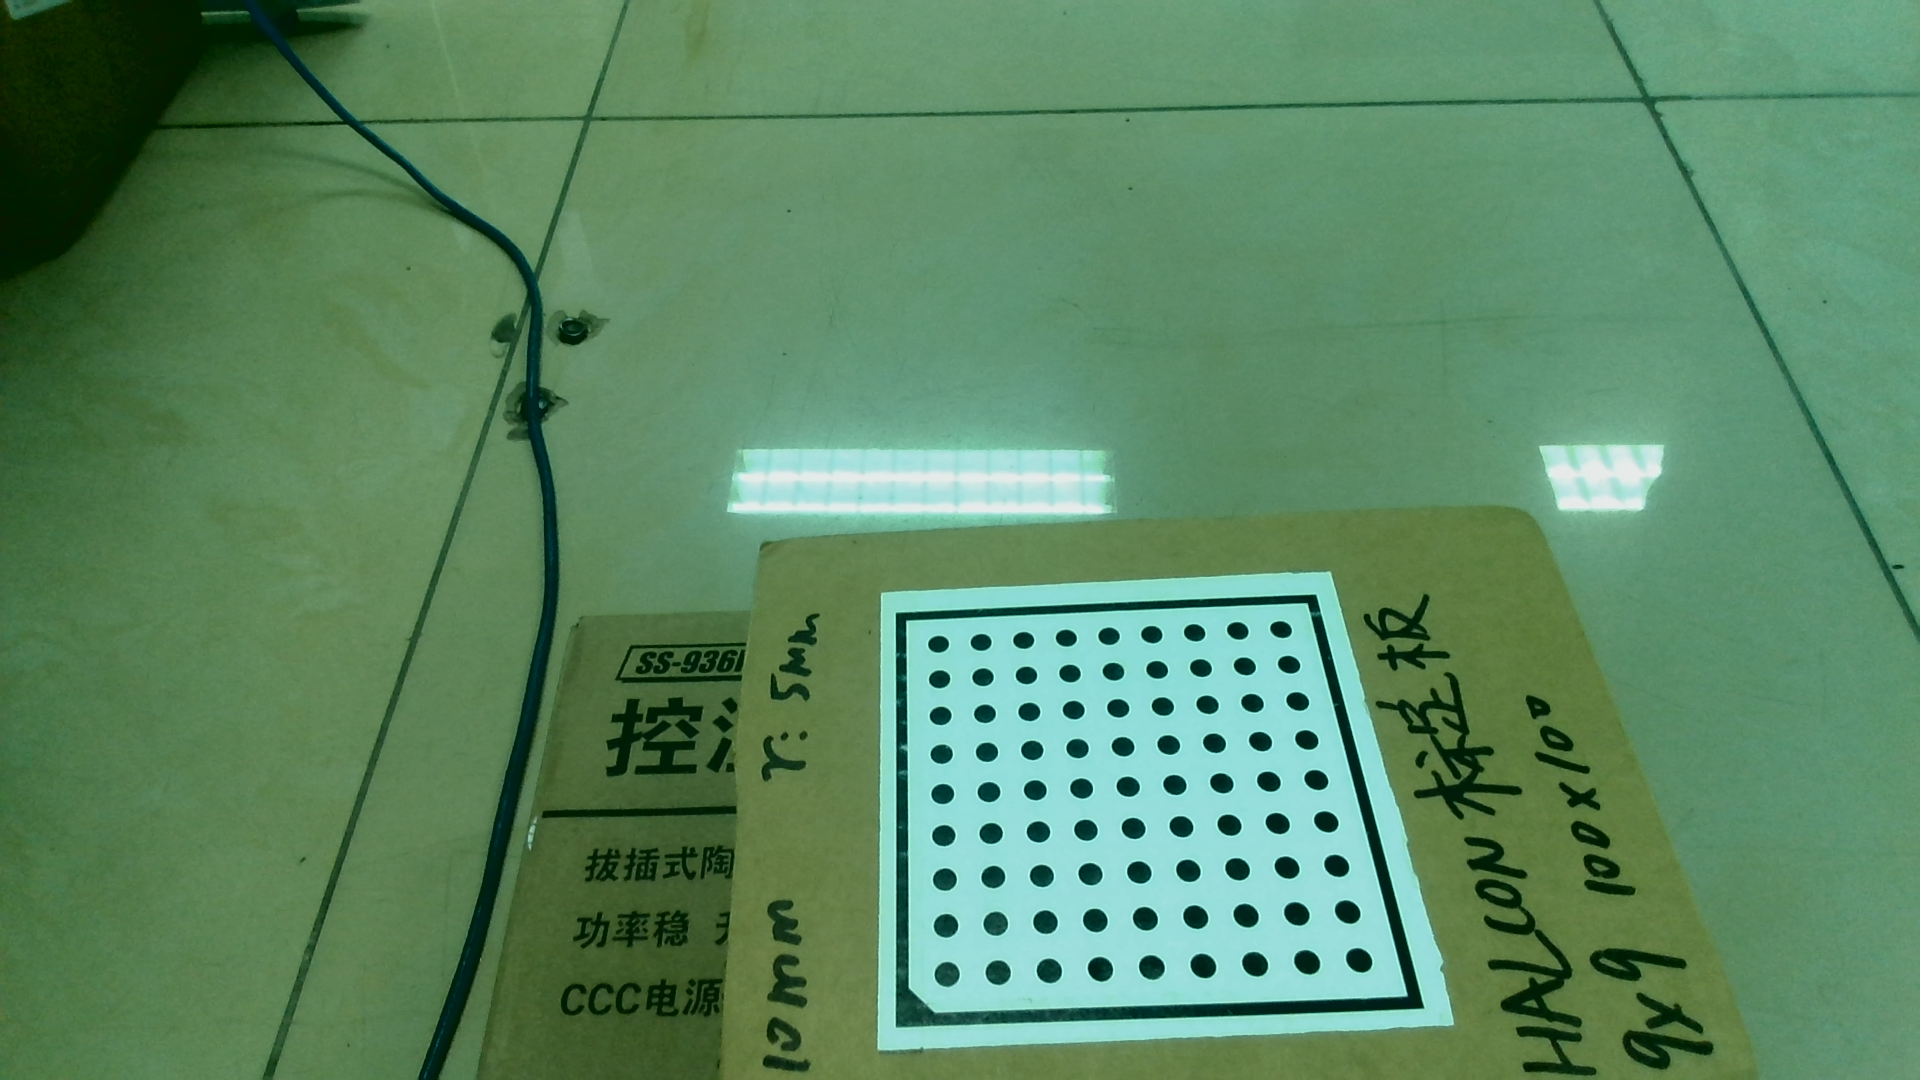 SS-936
控
拔插式陶
功率稳
CCC电源
10mm r: 5mm
HALCON 标定板
9x9 100x100